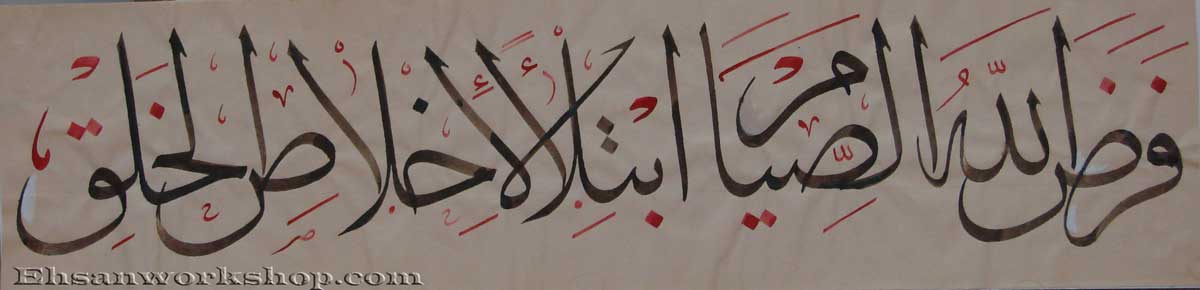 فَرَضَ اللّٰهُ الصِّيَامَ ابْتِلَاءً لِإِخْلَاصِ الْخَلْقِ
Ehsanworkshop.com